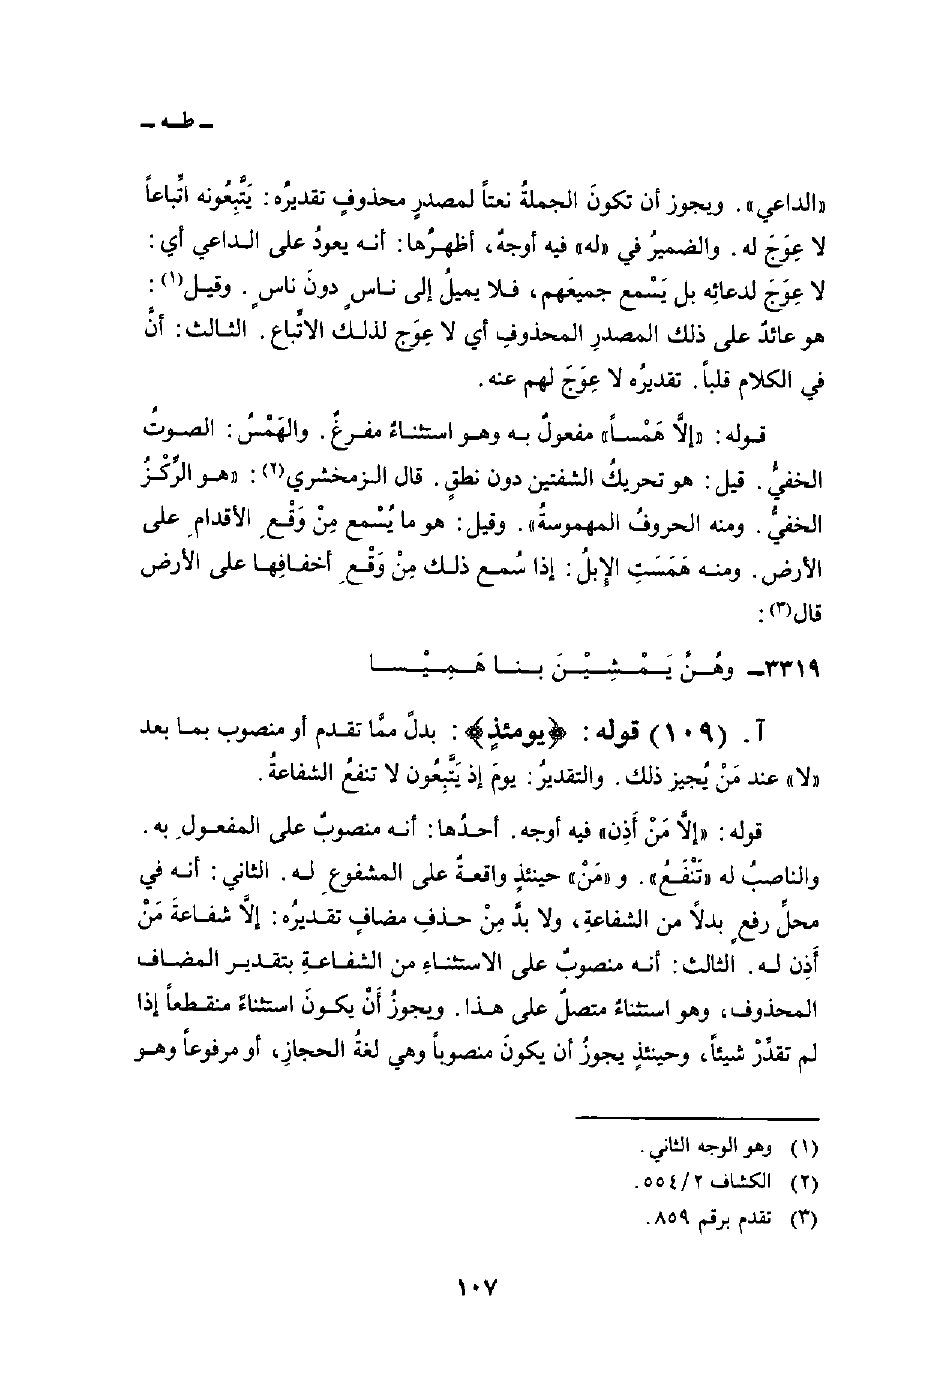 ـ طـه ـ
«الداعي». ويجوز أن تكونَ الجملةُ نعتاً لمصدرٍ محذوفٍ تقديرُه: يَتَّبِعُونه اتِّباعاً
لا عِوَجَ له. والضميرُ في «له» فيه أوجهٌ، أظهرُها: أنه يعودُ على الداعي أي:
لا عِوَجَ لدعائِه بل يَسْمع جميعَهم، فلا يميلُ إلى ناسٍ دونَ ناسٍ. وقيل(١):
هو عائدٌ على ذلك المصدرِ المحذوفِ أي لا عِوَج لذلك الاتِّباع. الثالث: أنَّ
في الكلام قلباً. تقديرُه لا عِوَجَ لهم عنه.
قوله: «إلَّا هَمْساً» مفعولٌ به وهو استثناءٌ مفرغٌ. والهَمْسُ: الصوتُ
الخفيُّ. قيل: هو تحريكُ الشفتين دون نطقٍ. قال الزمخشري(٢): «هو الرِّكْزُ
الخفيُّ. ومنه الحروفُ المهموسةُ». وقيل: هو ما يُسْمع مِنْ وَقْعِ الأقدامِ على
الأرض. ومنه هَمَسَتِ الإِبلُ: إذا سُمع ذلك مِنْ وَقْعِ أخفافِها على الأرض
قال(٣):
٣٣١٩ـ وهُنَّ يَمْشِيْنَ بنا هَمِيْسا
آ. (١٠٩) قوله: ﴿يومئذٍ﴾: بدلٌ ممَّا تقدم أو منصوب بما بعد
«لا» عند مَنْ يُجيز ذلك. والتقديرُ: يومَ إذ يَتَّبِعُون لا تنفعُ الشفاعةُ.
قوله: «إلَّا مَنْ أَذِن» فيه أوجه. أحدُها: أنه منصوبٌ على المفعولِ به.
والناصبُ له «تَنْفَعُ». و «مَنْ» حينئذٍ واقعةٌ على المشفوعِ له. الثاني: أنه في
محلِّ رفعٍ بدلاً من الشفاعةِ، ولا بدَّ مِنْ حذف مضافٍ تقديرُه: إلَّا شفاعةَ مَنْ
أَذِن له. الثالث: أنه منصوبٌ على الاستثناءِ من الشفاعةِ بتقدير المضاف
المحذوف، وهو استثناءٌ متصلٌ على هذا. ويجوزُ أَنْ يكونَ استثناءً منقطعاً إذا
لم تقدِّرْ شيئاً، وحينئذٍ يجوزُ أن يكونَ منصوباً وهي لغةُ الحجازِ، أو مرفوعاً وهو
(١) وهو الوجه الثاني.
(٢) الكشاف ٥٥٤/٢.
(٣) تقدم برقم ٨٥٩.
١٠٧